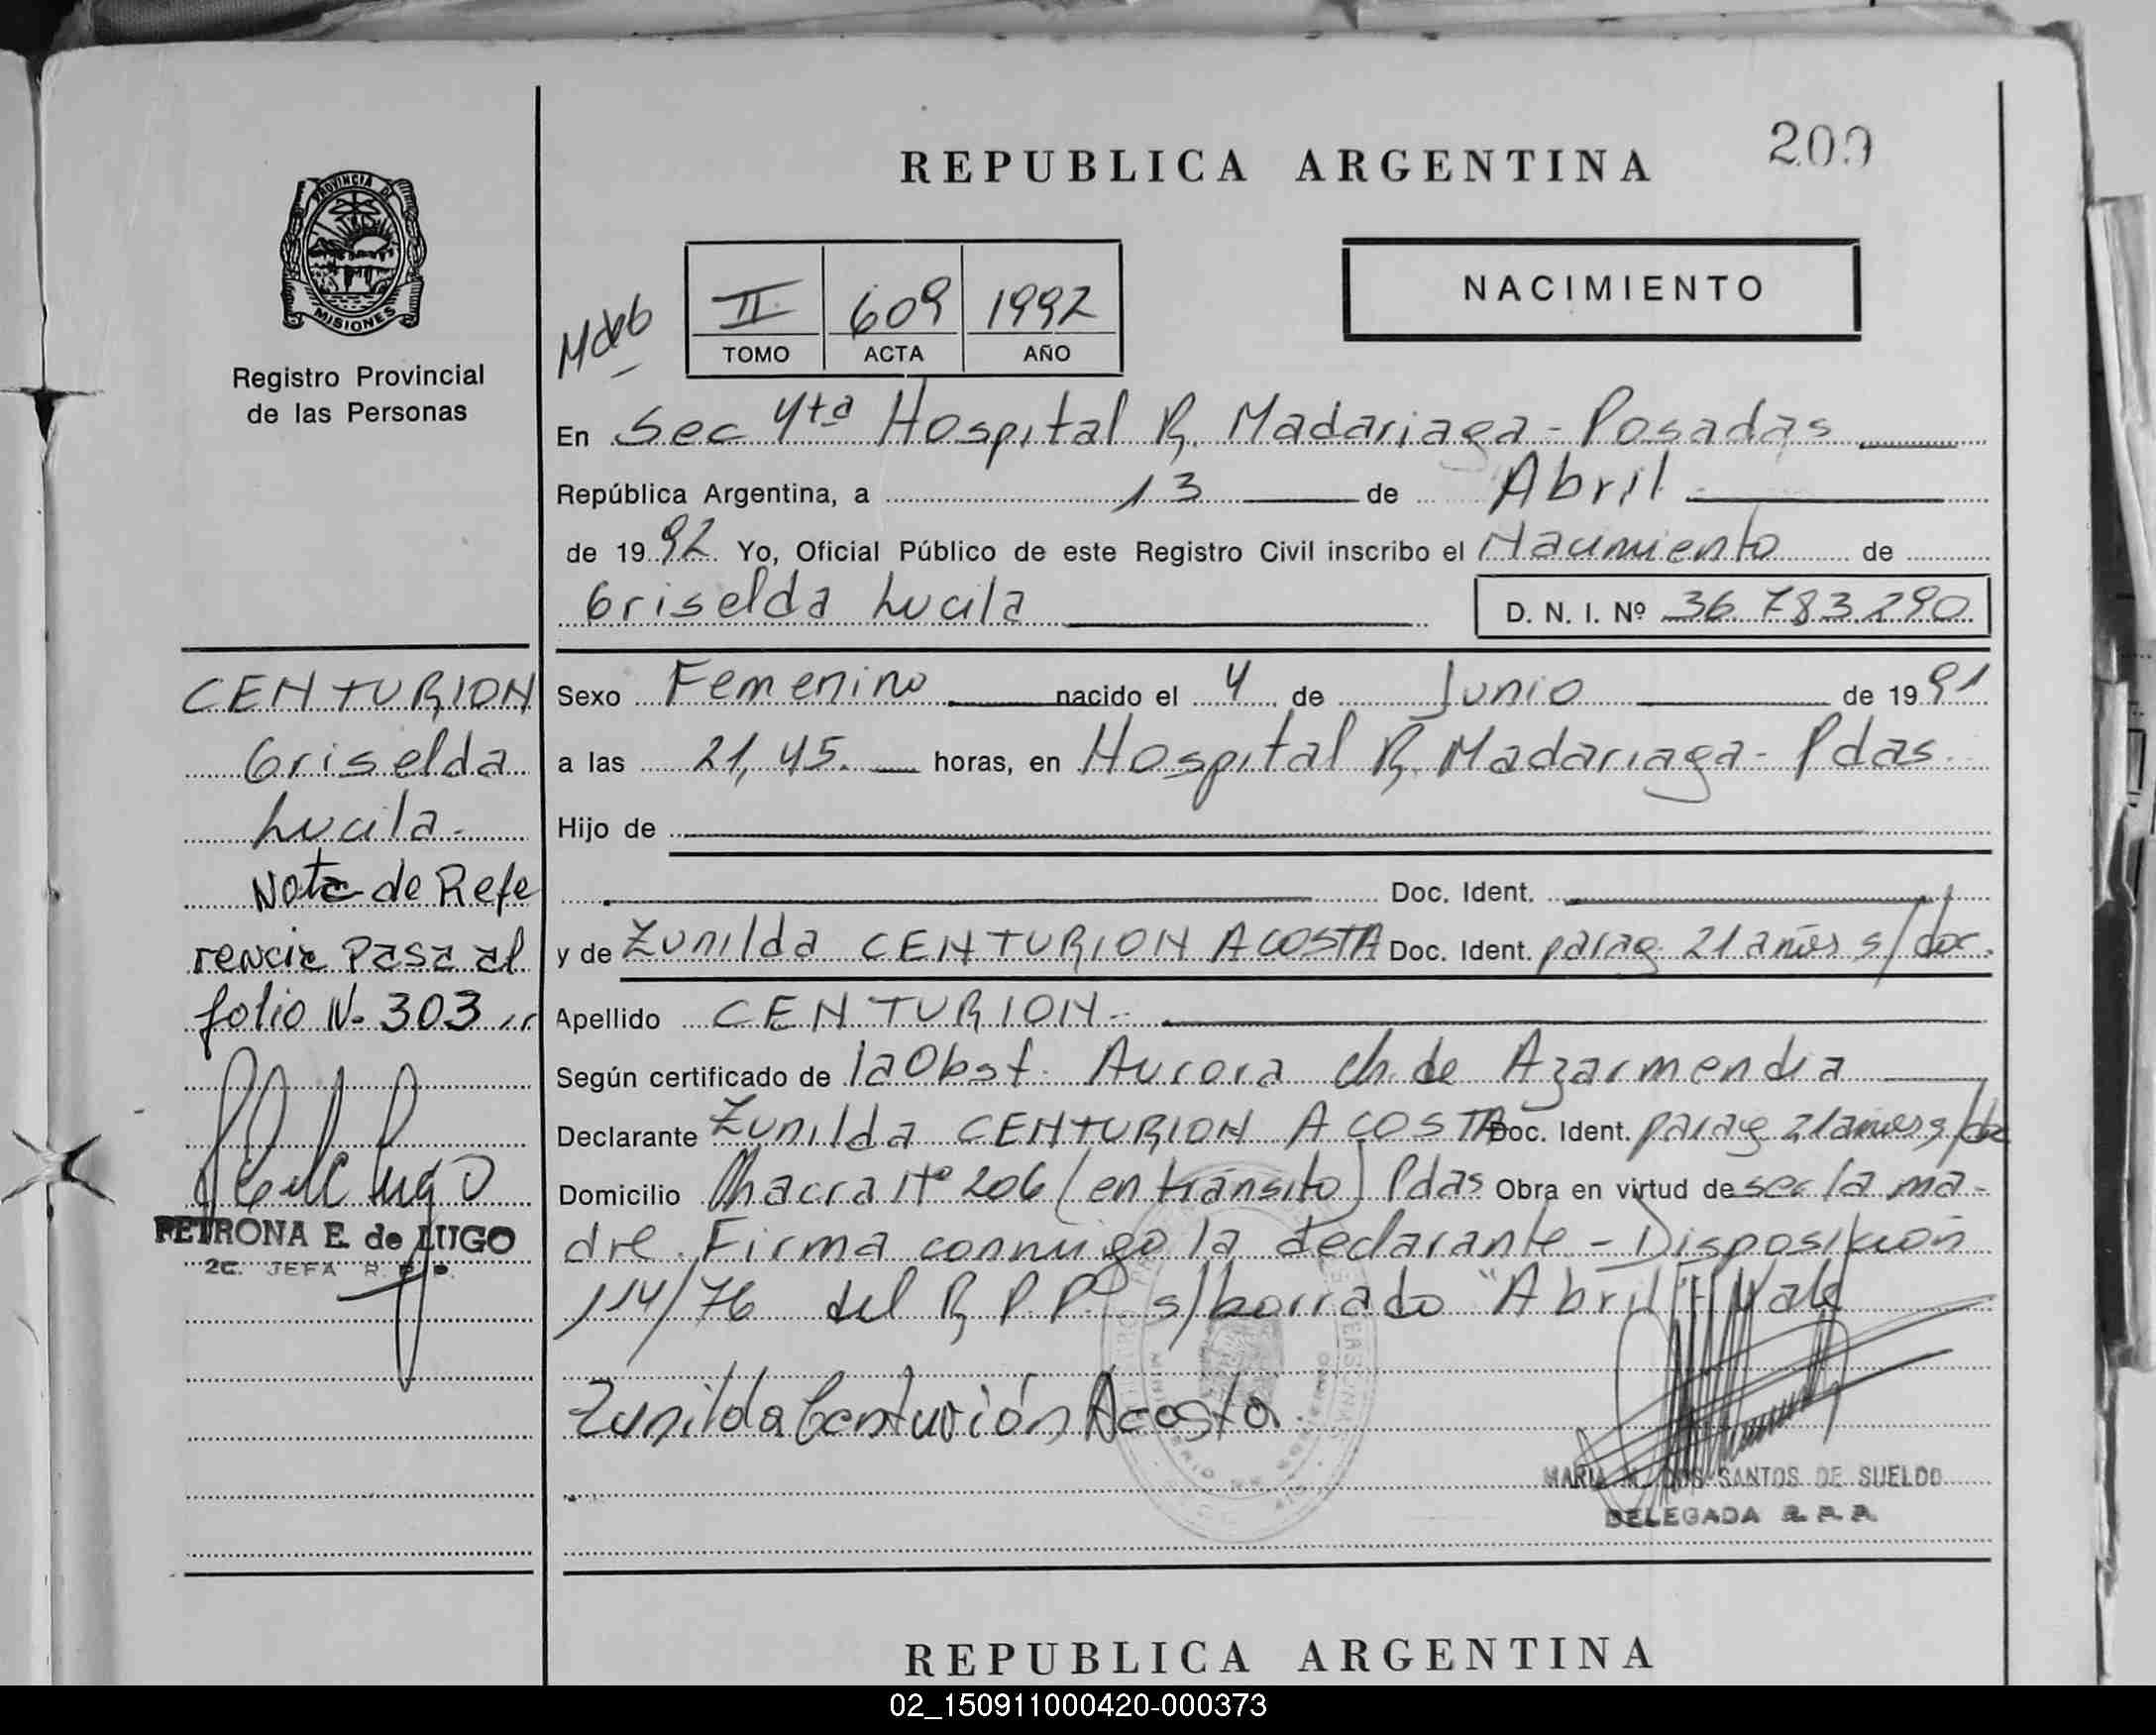 REPUBLICA ARGENTINA
209
PROVINCIA DE
MISIONES
Registro Provincial
de las Personas
NACIMIENTO
II 609 1992
TOMO ACTA AÑO
En Sec 4ta Hospital R. Madariaga - Posadas
República Argentina, a 13 de Abril
de 1992 Yo, Oficial Público de este Registro Civil inscribo el Nacimiento de
Griselda Lucila D. N. I. Nº 36.783.290
Sexo Femenino nacido el 4 de Junio de 1991
a las 21,45. horas, en Hospital R. Madariaga - Pdas.
Hijo de
Doc. Ident.
y de Zunilda CENTURION ACOSTA Doc. Ident. parag. 21 años s/doc.
Apellido CENTURION.-
Según certificado de la Obst. Aurora Ch. de Azarmendia
Declarante Zunilda CENTURION ACOSTA Doc. Ident. parag 21 años s/doc
Domicilio Chacra Nº 206 (en tránsito) Pdas Obra en virtud de ser la ma-
dre. Firma conmigo la declarante - Disposición
114/76 del R.P.P. s/borrado "Abril" Vale
Zunilda Centurión Acosta.
MARIA M. DOS SANTOS DE SUELDO
DELEGADA R. P. P.
CENTURION
Griselda
Lucila.-
Nota de Refe
rencia Pasa al
folio N. 303
PETRONA E. de LUGO
2a. JEFA R. P. P.
REPUBLICA ARGENTINA
02_150911000420-000373